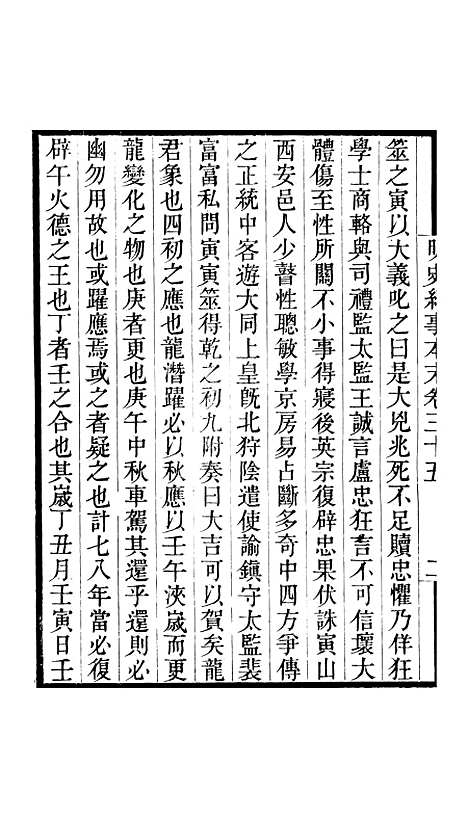 明史紀事本末卷三十五 二
筮之寅以大義叱之曰是大兇兆死不足贖忠懼乃佯狂
學士商輅與司禮監太監王誠言盧忠狂言不可信壞大
體傷至性所關不小事得寢後英宗復辟忠果伏誅寅山
西安邑人少瞽性聰敏學京房易占斷多奇中四方爭傳
之正統中客遊大同上皇旣北狩陰遣使諭鎭守太監裴
富富私問寅寅筮得乾之初九附奏曰大吉可以賀矣龍
君象也四初之應也龍潛躍必以秋應以壬午浹歲而更
龍變化之物也庚者更也庚午中秋車駕其還乎還則必
幽勿用故也或躍應焉或之者疑之也計七八年當必復
辟午火德之王也丁者壬之合也其歲丁丑月壬寅日壬